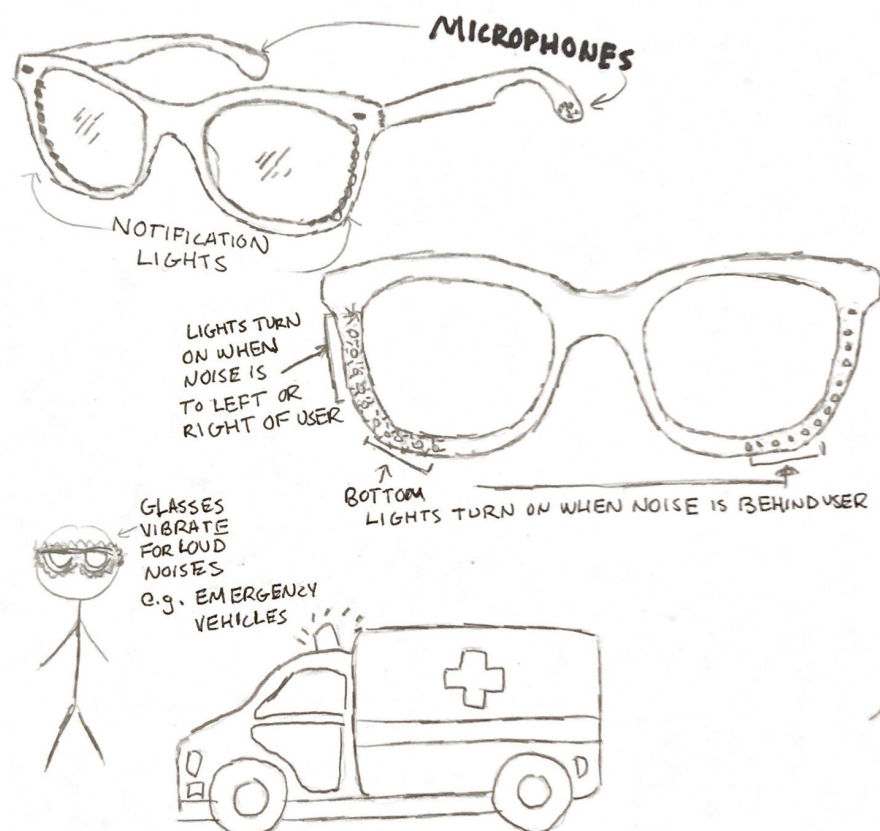 MICROPHONES
NOTIFICATION
LIGHTS
LIGHTS TURN
ON WHEN
NOISE IS
TO LEFT OR
RIGHT OF USER
BOTTOM
LIGHTS TURN ON WHEN NOISE IS BEHIND USER
GLASSES
VIBRATE
FOR LOUD
NOISES
e.g. EMERGENCY
VEHICLES